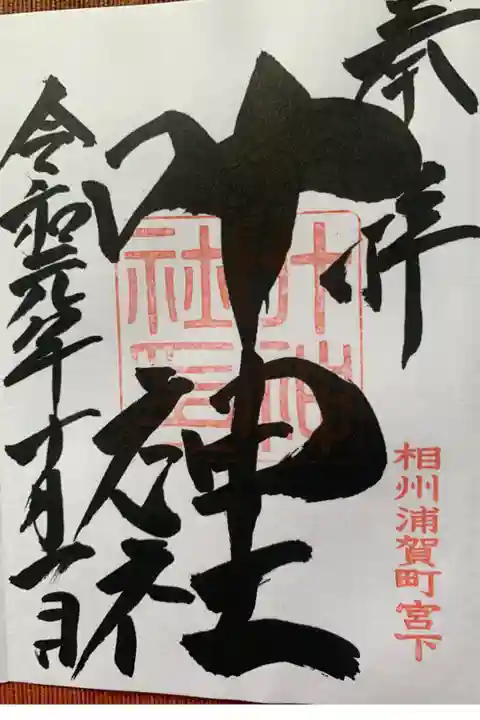 奉拝
相州浦賀町宮下
叶神社
叶神
社
令和元年十月一日